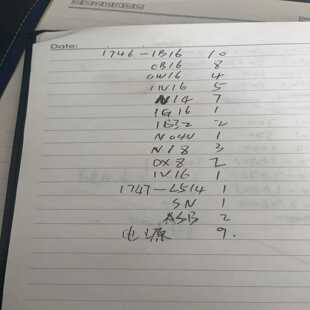 Date:
1746-IB16 10
OB16 8
OW16 4
IN16 5
NI4 7
IG16 1
IB32 2
NO4V 1
NI8 3
OX8 2
IV16 1
1747-L514 1
SN 1
ASB 2
电源 9.